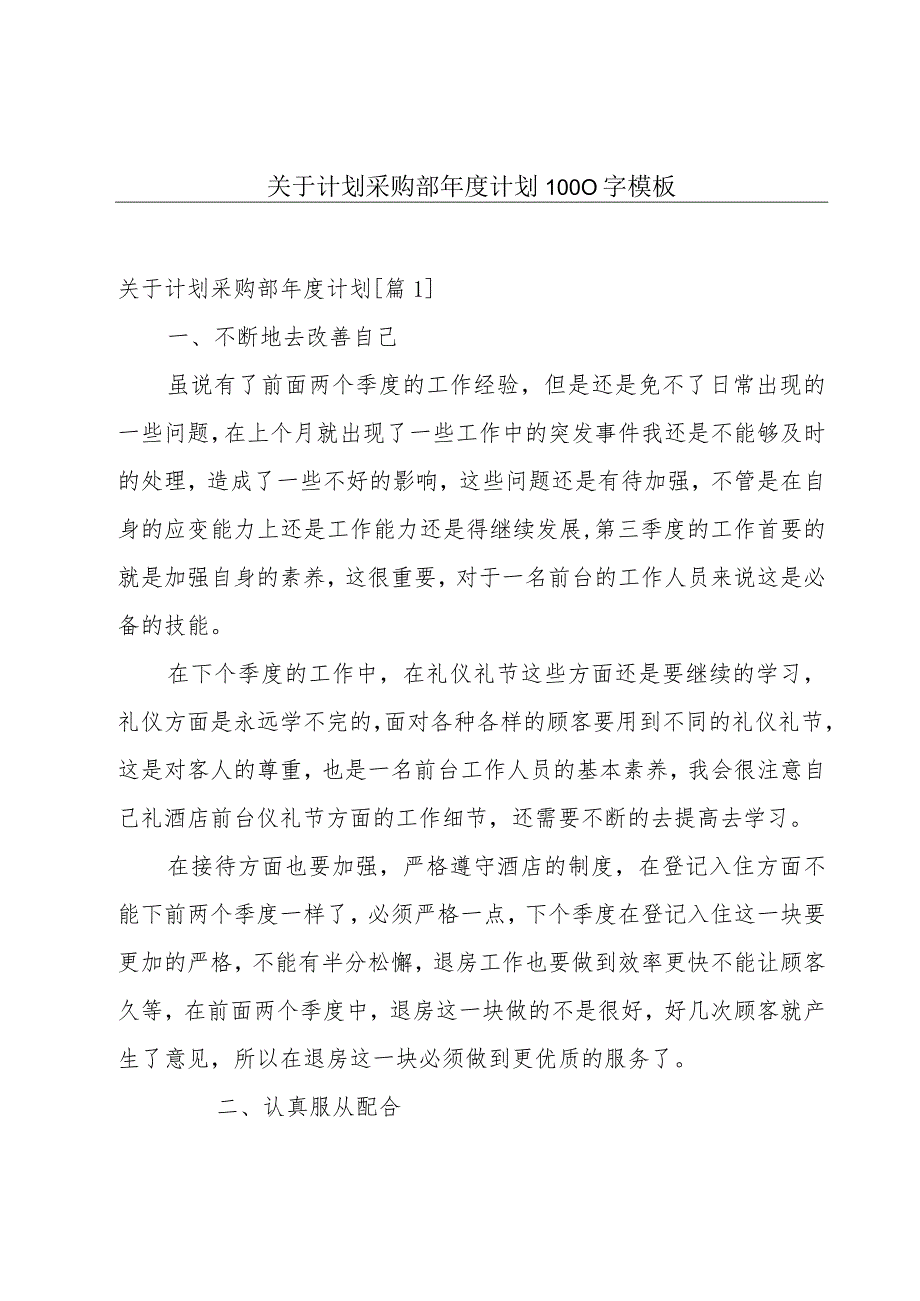 关于计划采购部年度计划100O字模板
关于计划采购部年度计划[篇1]
一、不断地去改善自己
虽说有了前面两个季度的工作经验，但是还是免不了日常出现的
一些问题,在上个月就出现了一些工作中的突发事件我还是不能够及时
的处理，造成了一些不好的影响，这些问题还是有待加强，不管是在自
身的应变能力上还是工作能力还是得继续发展,第三季度的工作首要的
就是加强自身的素养，这很重要，对于一名前台的工作人员来说这是必
备的技能。
在下个季度的工作中，在礼仪礼节这些方面还是要继续的学习，
礼仪方面是永远学不完的,面对各种各样的顾客要用到不同的礼仪礼节,
这是对客人的尊重，也是一名前台工作人员的基本素养，我会很注意自
己礼酒店前台仪礼节方面的工作细节，还需要不断的去提高去学习。
在接待方面也要加强，严格遵守酒店的制度，在登记入住方面不
能下前两个季度一样了，必须严格一点，下个季度在登记入住这一块要
更加的严格，不能有半分松懈，退房工作也要做到效率更快不能让顾客
久等，在前面两个季度中，退房这一块做的不是很好，好几次顾客就产
生了意见，所以在退房这一块必须做到更优质的服务了。
二、认真服从配合